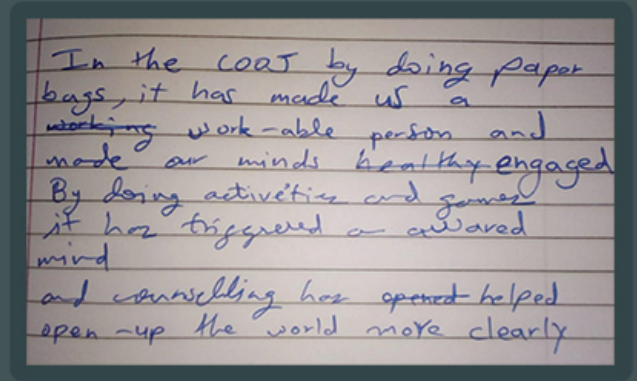 In the COOJ by doing papor
bags, it has made us a
working work-able person and
made our minds healthy engaged
By doing activeties and games
it has triggrered a awared
mind
and counsellling has opened helped
open-up the world more clearly